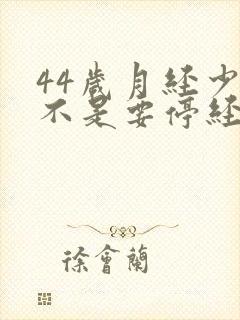 44歲月經少
不是要停經
徐會蘭